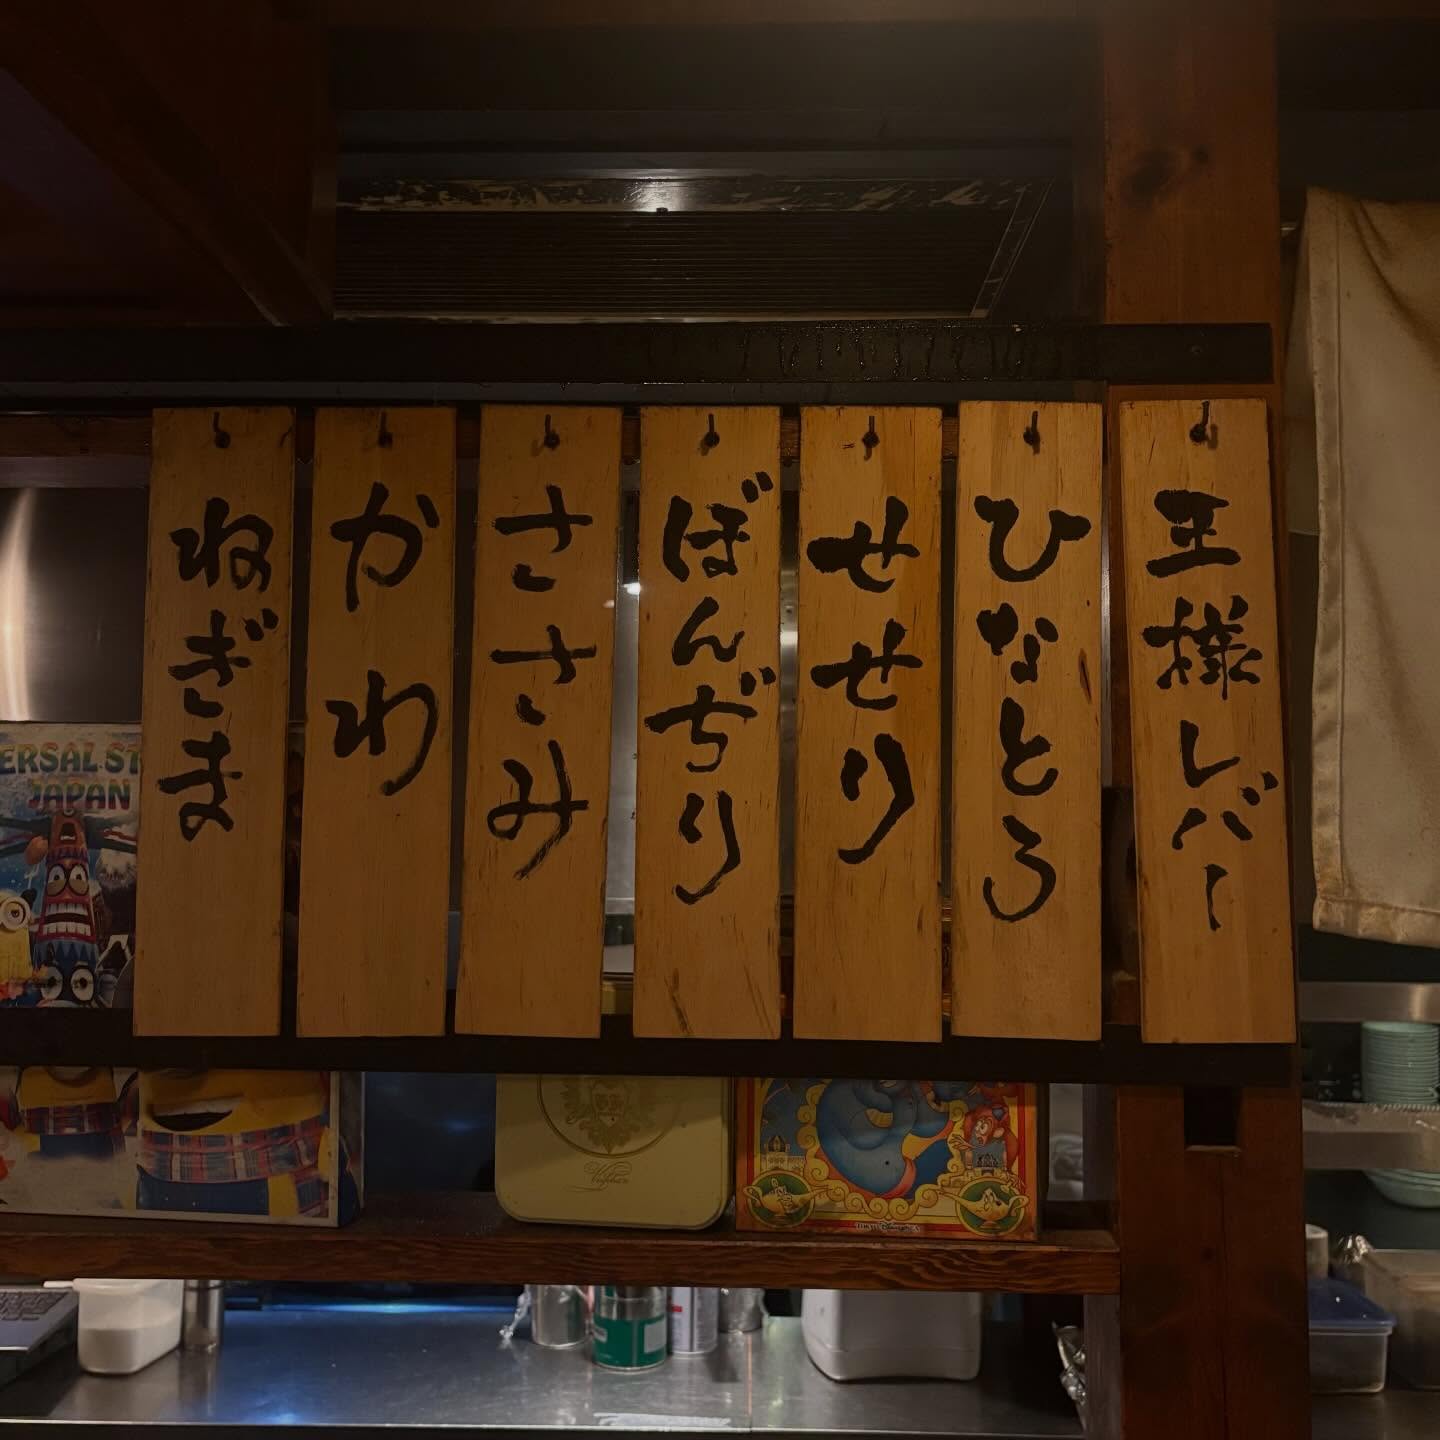 王様レバー
ひなとろ
せせり
ぼんぢり
ささみ
かわ
ねぎま
ERSAL ST
JAPAN